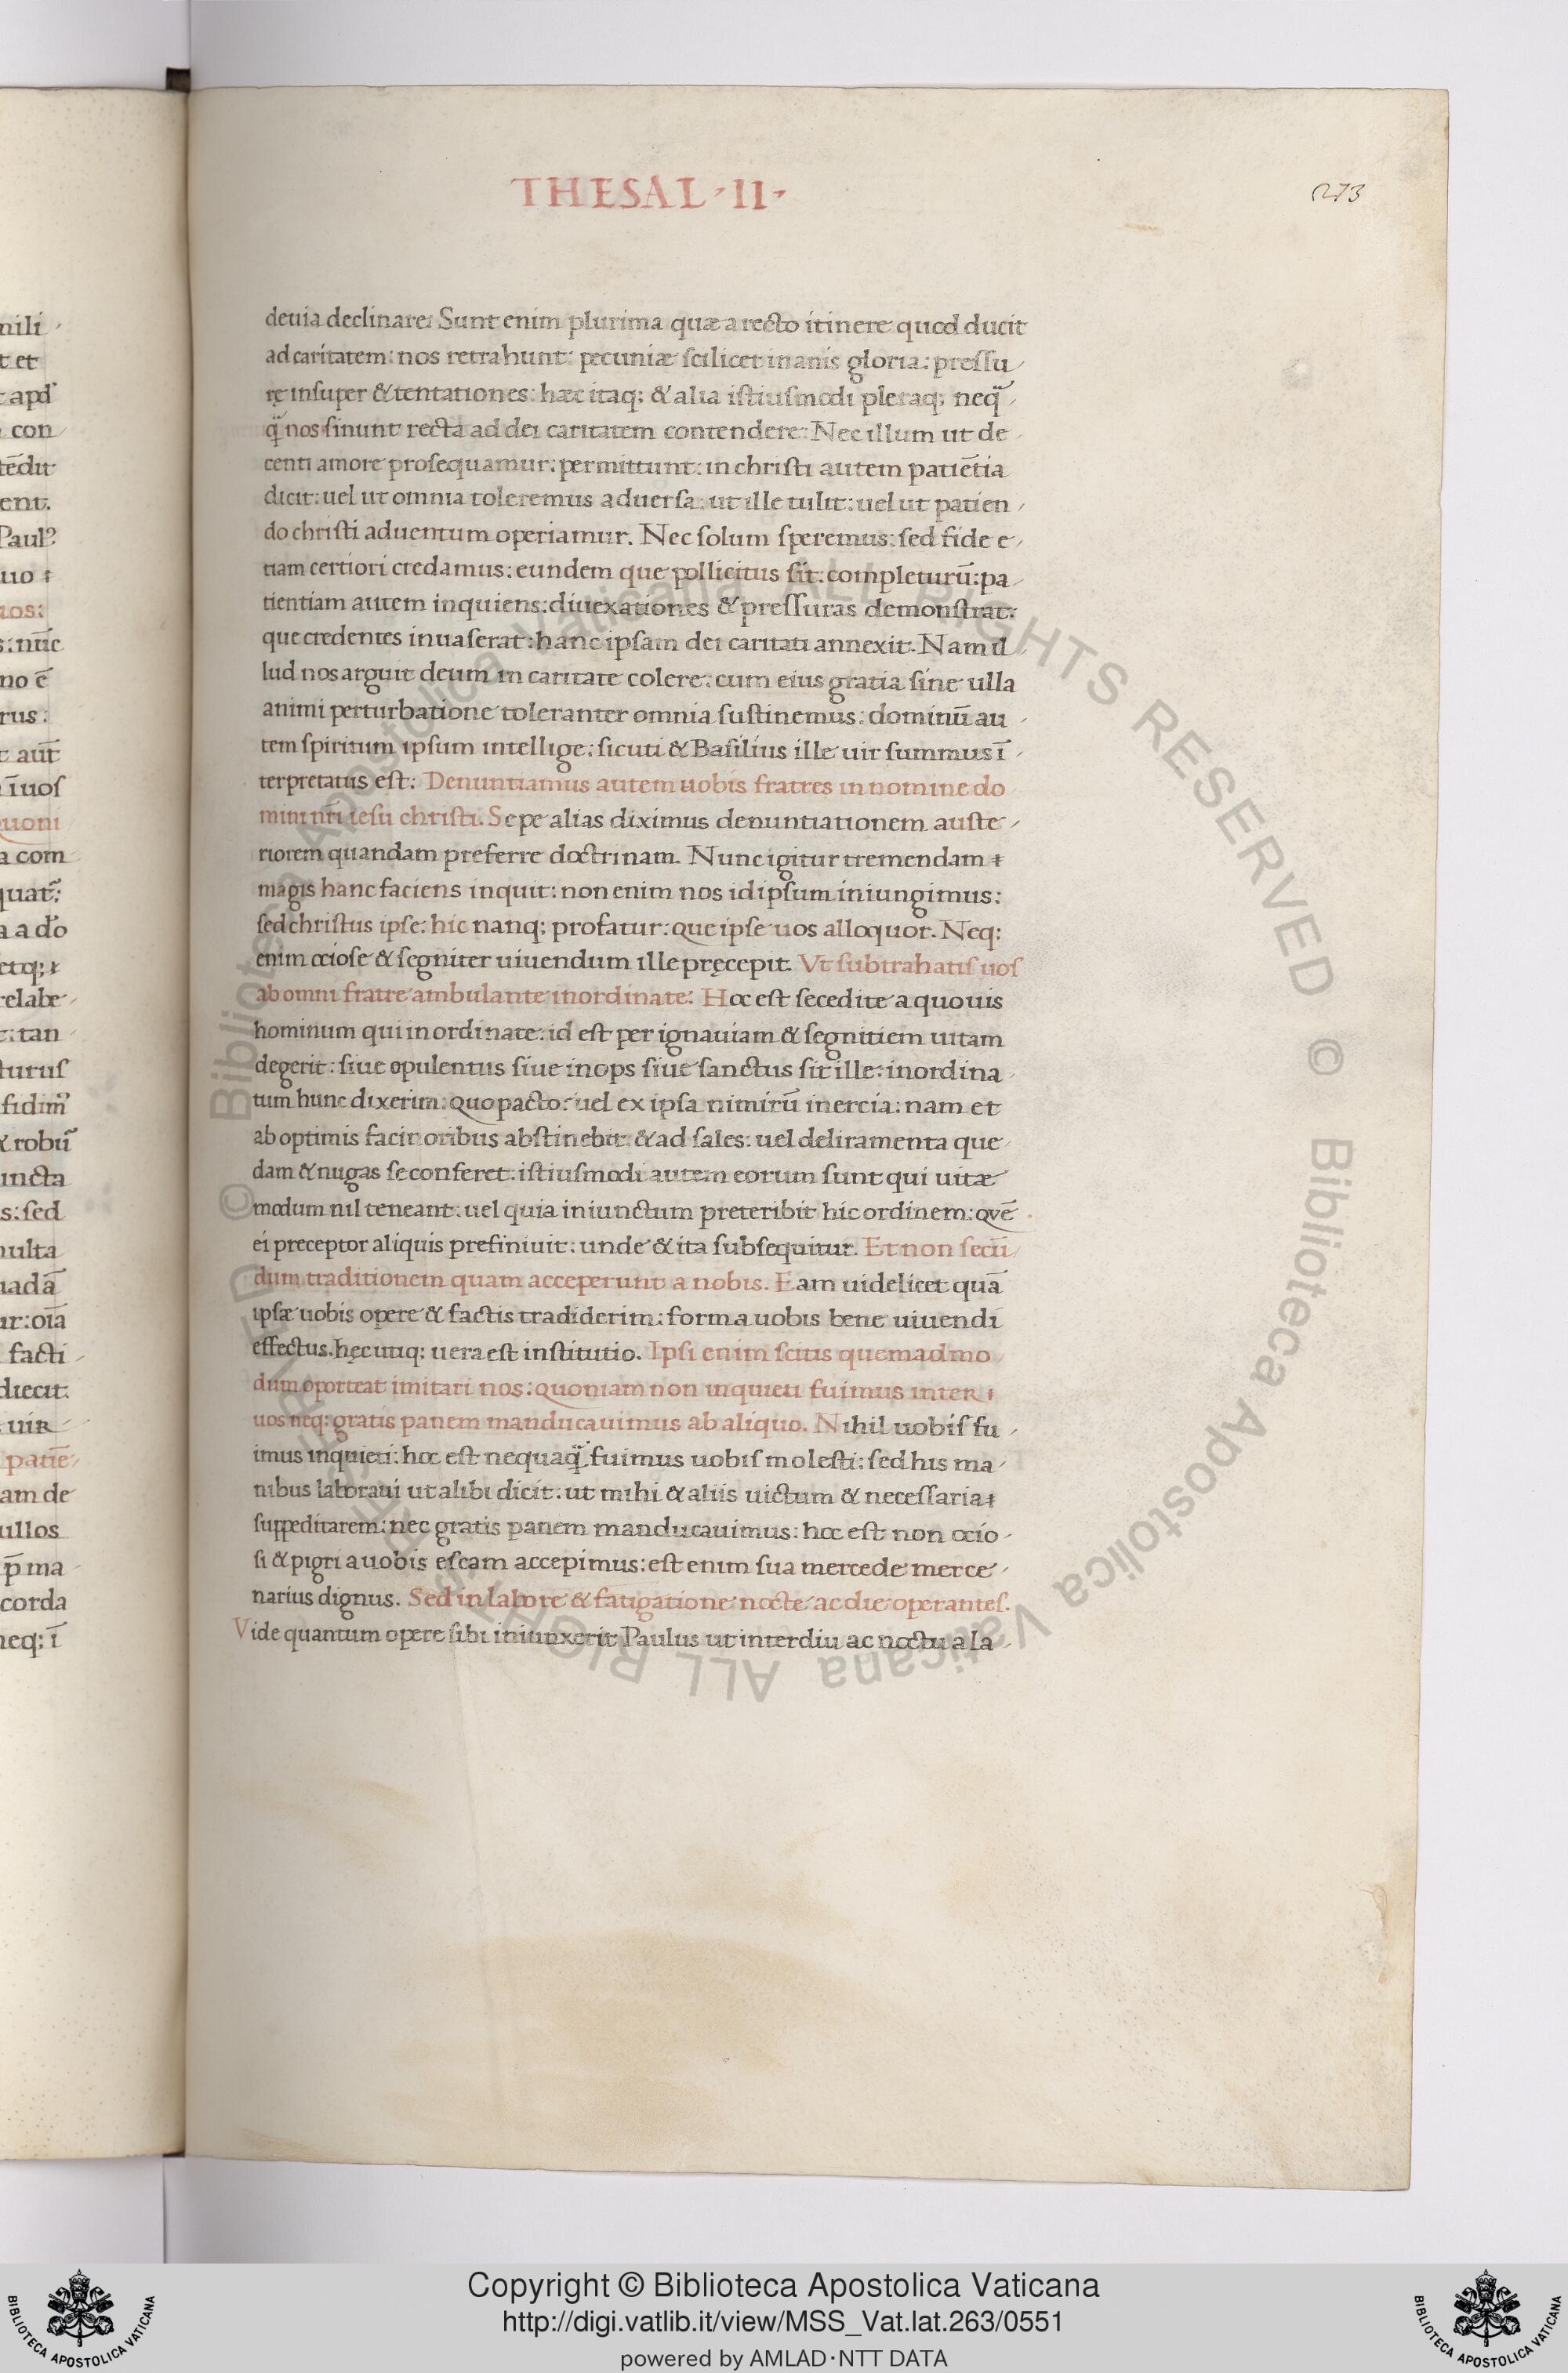 THESAL · II ·
273
deuia declinare: Sunt enim plurima quæ a recto itinere quod ducit
ad caritatem: nos retrahunt: pecuniæ scilicet inanis gloria: pressu
rę insuper & tentationes: hæc itaq; & alia istiusmodi pleraq; neq̃
q̃ nos sinunt recta ad dei caritatem contendere: Nec illum ut de
centi amore prosequamur: permittunt: in christi autem patiẽtia
dicit: uel ut omnia toleremus aduersa: ut ille tulit: uel ut patien
do christi aduentum operiamur. Nec solum speremus: sed fide e
tiam certiori credamus: eundem que pollicitus sit: completurũ: pa
tientiam autem inquiens: diuexationes & pressuras demonstrat:
que credentes inuaserat: hanc ipsam dei caritati annexit. Nam il
lud nos arguit deum in caritate colere: cum eius gratia sine ulla
animi perturbatione toleranter omnia sustinemus: dominũ au
tem spiritum ipsum intellige: sicuti & Basilius ille uir summus ĩ
terpretatus est: Denuntiamus autem uobis fratres in nomine do
mini nri iesu christi. Sepe alias diximus denuntiationem auste
riorem quandam preferre doctrinam. Nunc igitur tremendam
magis hanc faciens inquit: non enim nos id ipsum iniungimus:
sed christus ipse: hic nanq; profatur: que ipse uos alloquor. Neq:
enim ociose & segniter uiuendum ille pręcepit. Vt subtrahatis uos
ab omni fratre ambulante inordinate: Hoc est secedite a quouis
hominum qui inordinate: id est per ignauiam & segnitiem uitam
degerit: siue opulentus siue inops siue sanctus sit ille: inordina
tum hunc dixerim: quo pacto: uel ex ipsa nimirũ inercia: nam et
ab optimis facinoribus abstinebit: & ad sales: uel deliramenta que
dam & nugas se conferet: istiusmodi autem eorum sunt qui uitæ
modum nil teneant: uel quia iniunctum preteribit hic ordinem: quẽ
ei preceptor aliquis prefiniuit: unde & ita subsequitur. Et non secũ
dum traditionem quam acceperunt a nobis. Eam uidelicet quã
ipsæ uobis opere & factis tradiderim: forma uobis bene uiuendi
effectus. hęc utiq: uera est institutio. Ipsi enim scitis quemadmo
dum oporteat imitari nos: quoniam non inquieti fuimus inter
uos neq: gratis panem manducauimus ab aliquo. Nihil uobis fu
imus inquieti: hoc est nequaq̃ fuimus uobis molesti: sed his ma
nibus laboraui ut alibi dicit: ut mihi & aliis uictum & necessaria
suppeditarem: nec gratis panem manducauimus: hoc est non ocio
si & pigri a uobis escam accepimus: est enim sua mercede merce
narius dignus. Sed in labore & fatigatione nocte ac die operantes.
Vide quantum opere sibi iniunxerit Paulus ut interdiu ac noctu a la
Copyright © Biblioteca Apostolica Vaticana
http://digi.vatlib.it/view/MSS_Vat.lat.263/0551
powered by AMLAD·NTT DATA